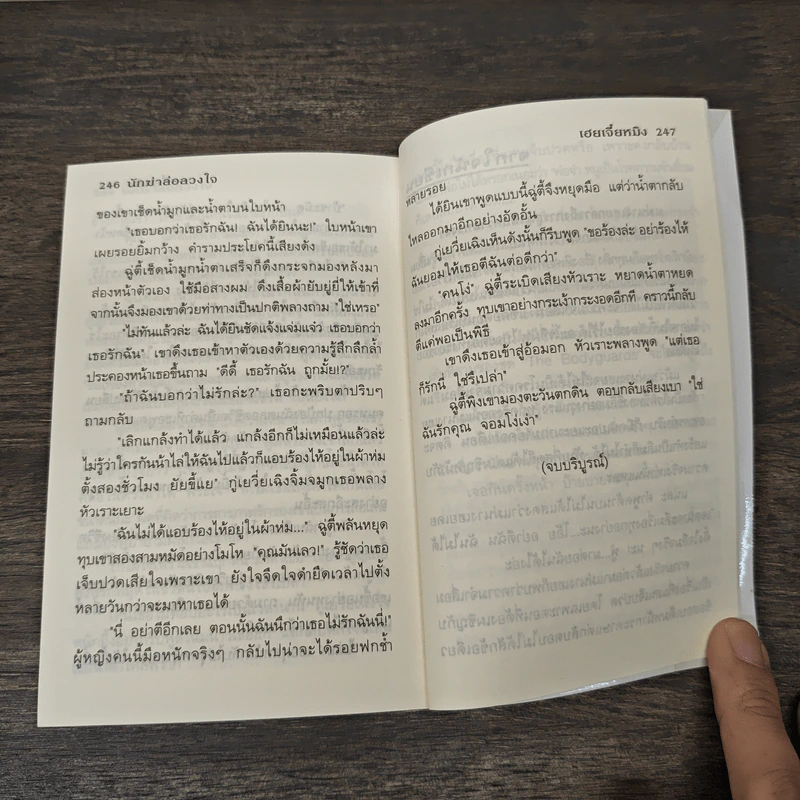 246 นักฆ่าล่อลวงใจ
ของเขาเช็ดน้ำมูกและน้ำตาบนใบหน้า
"เธอบอกว่าเธอรักฉัน! ฉันได้ยินนะ!" ใบหน้าเขา
เผยรอยยิ้มกว้าง คำรามประโยคนี้เสียงดัง
ฉู่ตี้เช็ดน้ำมูกน้ำตาเสร็จก็ดึงกระจกมองหลังมา
ส่องหน้าตัวเอง ใช้มือสางผม ดึงเสื้อผ้ายับยู่ยี่ให้เข้าที่
จากนั้นจึงมองเขาด้วยท่าทางเป็นปกติพลางถาม "ใช่เหรอ"
"ไม่ทันแล้วล่ะ ฉันได้ยินชัดแจ้งแจ่มแจ๋ว เธอบอกว่า
เธอรักฉัน" เขาดึงเธอเข้าหาตัวเองด้วยความรู้สึกลึกล้ำ
ประคองหน้าเธอขึ้นถาม "ตี้ตี้ เธอรักฉัน ถูกมั้ย!?"
"ถ้าฉันบอกว่าไม่รักล่ะ?" เธอกะพริบตาปริบๆ
ถามกลับ
"เลิกแกล้งทำได้แล้ว แกล้งอีกก็ไม่เหมือนแล้วล่ะ
ไม่รู้ว่าใครกันน้าไล่ให้ฉันไปแล้วก็แอบร้องไห้อยู่ในผ้าห่ม
ตั้งสองชั่วโมง ยัยขี้แย" กู่เยวี่ยเฉิงจิ้มจมูกเธอพลาง
หัวเราะเยาะ
"ฉันไม่ได้แอบร้องไห้อยู่ในผ้าห่ม..." ฉู่ตี้พลันหยุด
ทุบเขาสองสามหมัดอย่างโมโห "คุณมันเลว!" รู้ชัดว่าเธอ
เจ็บปวดเสียใจเพราะเขา ยังใจจืดใจดำยืดเวลาไปตั้ง
หลายวันกว่าจะมาหาเธอได้
"นี่ อย่าตีอีกเลย ตอนนั้นฉันนึกว่าเธอไม่รักฉันนี่!"
ผู้หญิงคนนี้มือหนักจริงๆ กลับไปน่าจะได้รอยฟกช้ำ
เฮยเจี๋ยหมิง 247
หลายรอย
ได้ยินเขาพูดแบบนี้ฉู่ตี้จึงหยุดมือ แต่ว่าน้ำตากลับ
ไหลออกมาอีกอย่างอัดอั้น
กู่เยวี่ยเฉิงเห็นดังนั้นก็รีบพูด "ขอร้องล่ะ อย่าร้องไห้
ฉันยอมให้เธอตีฉันต่อดีกว่า"
"คนโง่" ฉู่ตี้ระเบิดเสียงหัวเราะ หยาดน้ำตาหยด
ลงมาอีกครั้ง ทุบเขาอย่างกระเง้ากระงอดอีกที คราวนี้กลับ
ตีแค่พอเป็นพิธี
เขาดึงเธอเข้าสู่อ้อมอก หัวเราะพลางพูด "แต่เธอ
ก็รักนี่ ใช่รึเปล่า"
ฉู่ตี้พิงเขามองตะวันตกดิน ตอบกลับเสียงเบา "ใช่
ฉันรักคุณ จอมโง่เง่า"
(จบบริบูรณ์)